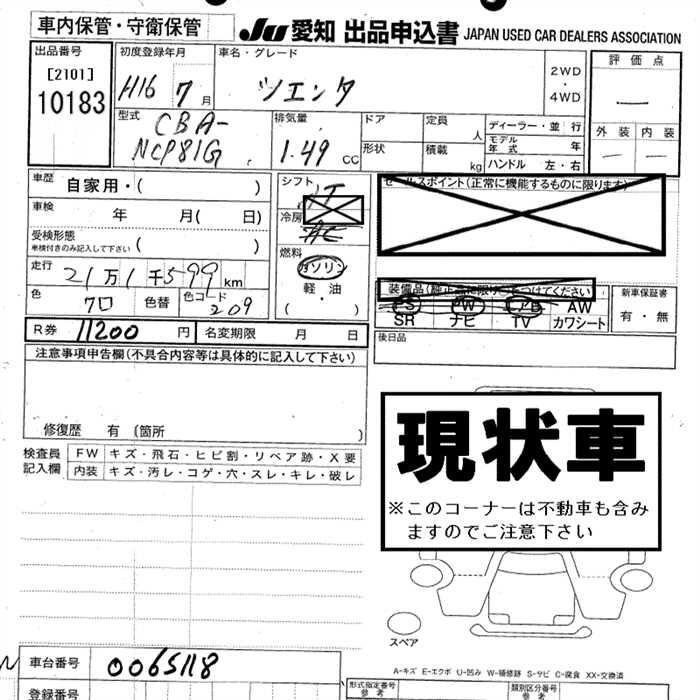 車内保管・守衛保管
Ju 愛知 出品申込書 JAPAN USED CAR DEALERS ASSOCIATION
出品番号
[2101]
10183
初度登録年月
H16 7月
車名・グレード
シエンタ
2WD
・
4WD
評価点
—
外装 内装
— —
型式
CBA-
NCP81G
排気量
1.49 CC
ドア
定員 人
形状
積載 kg
ディーラー・並行
モデル年式 年
ハンドル 左・右
車歴 自家用・( )
車検 年 月( 日)
受検形態
車検付きのみ記入して下さい ( )
走行 21万1千599km
色 クロ 色替 色コード 209
シフト
AT
冷房
AC
燃料
ガソリン
・
軽・油
( )
セールスポイント(正常に機能するものに限ります)
装備品(純正品に限り○をつけてください)
PS PW エアB AW
SR ナビ TV カワシート
新車保証書
有・無
R券 11200円 名変期限 月 日
後日品
注意事項申告欄(不具合内容等は具体的に記入して下さい)
修復歴 有 〔箇所 〕
現状車
※このコーナーは不動車も含み
ますのでご注意下さい
検査員
記入欄
FW キズ・飛石・ヒビ割・リペア跡・X要
内装 キズ・汚レ・コゲ・穴・スレ・キレ・破レ
スペア
車台番号 0065118
A-キズ E-エクボ U-凹み W-補修跡 S-サビ C-腐食 XX-交換済
登録番号
形式指定番号
参考
類別区分番号
参考